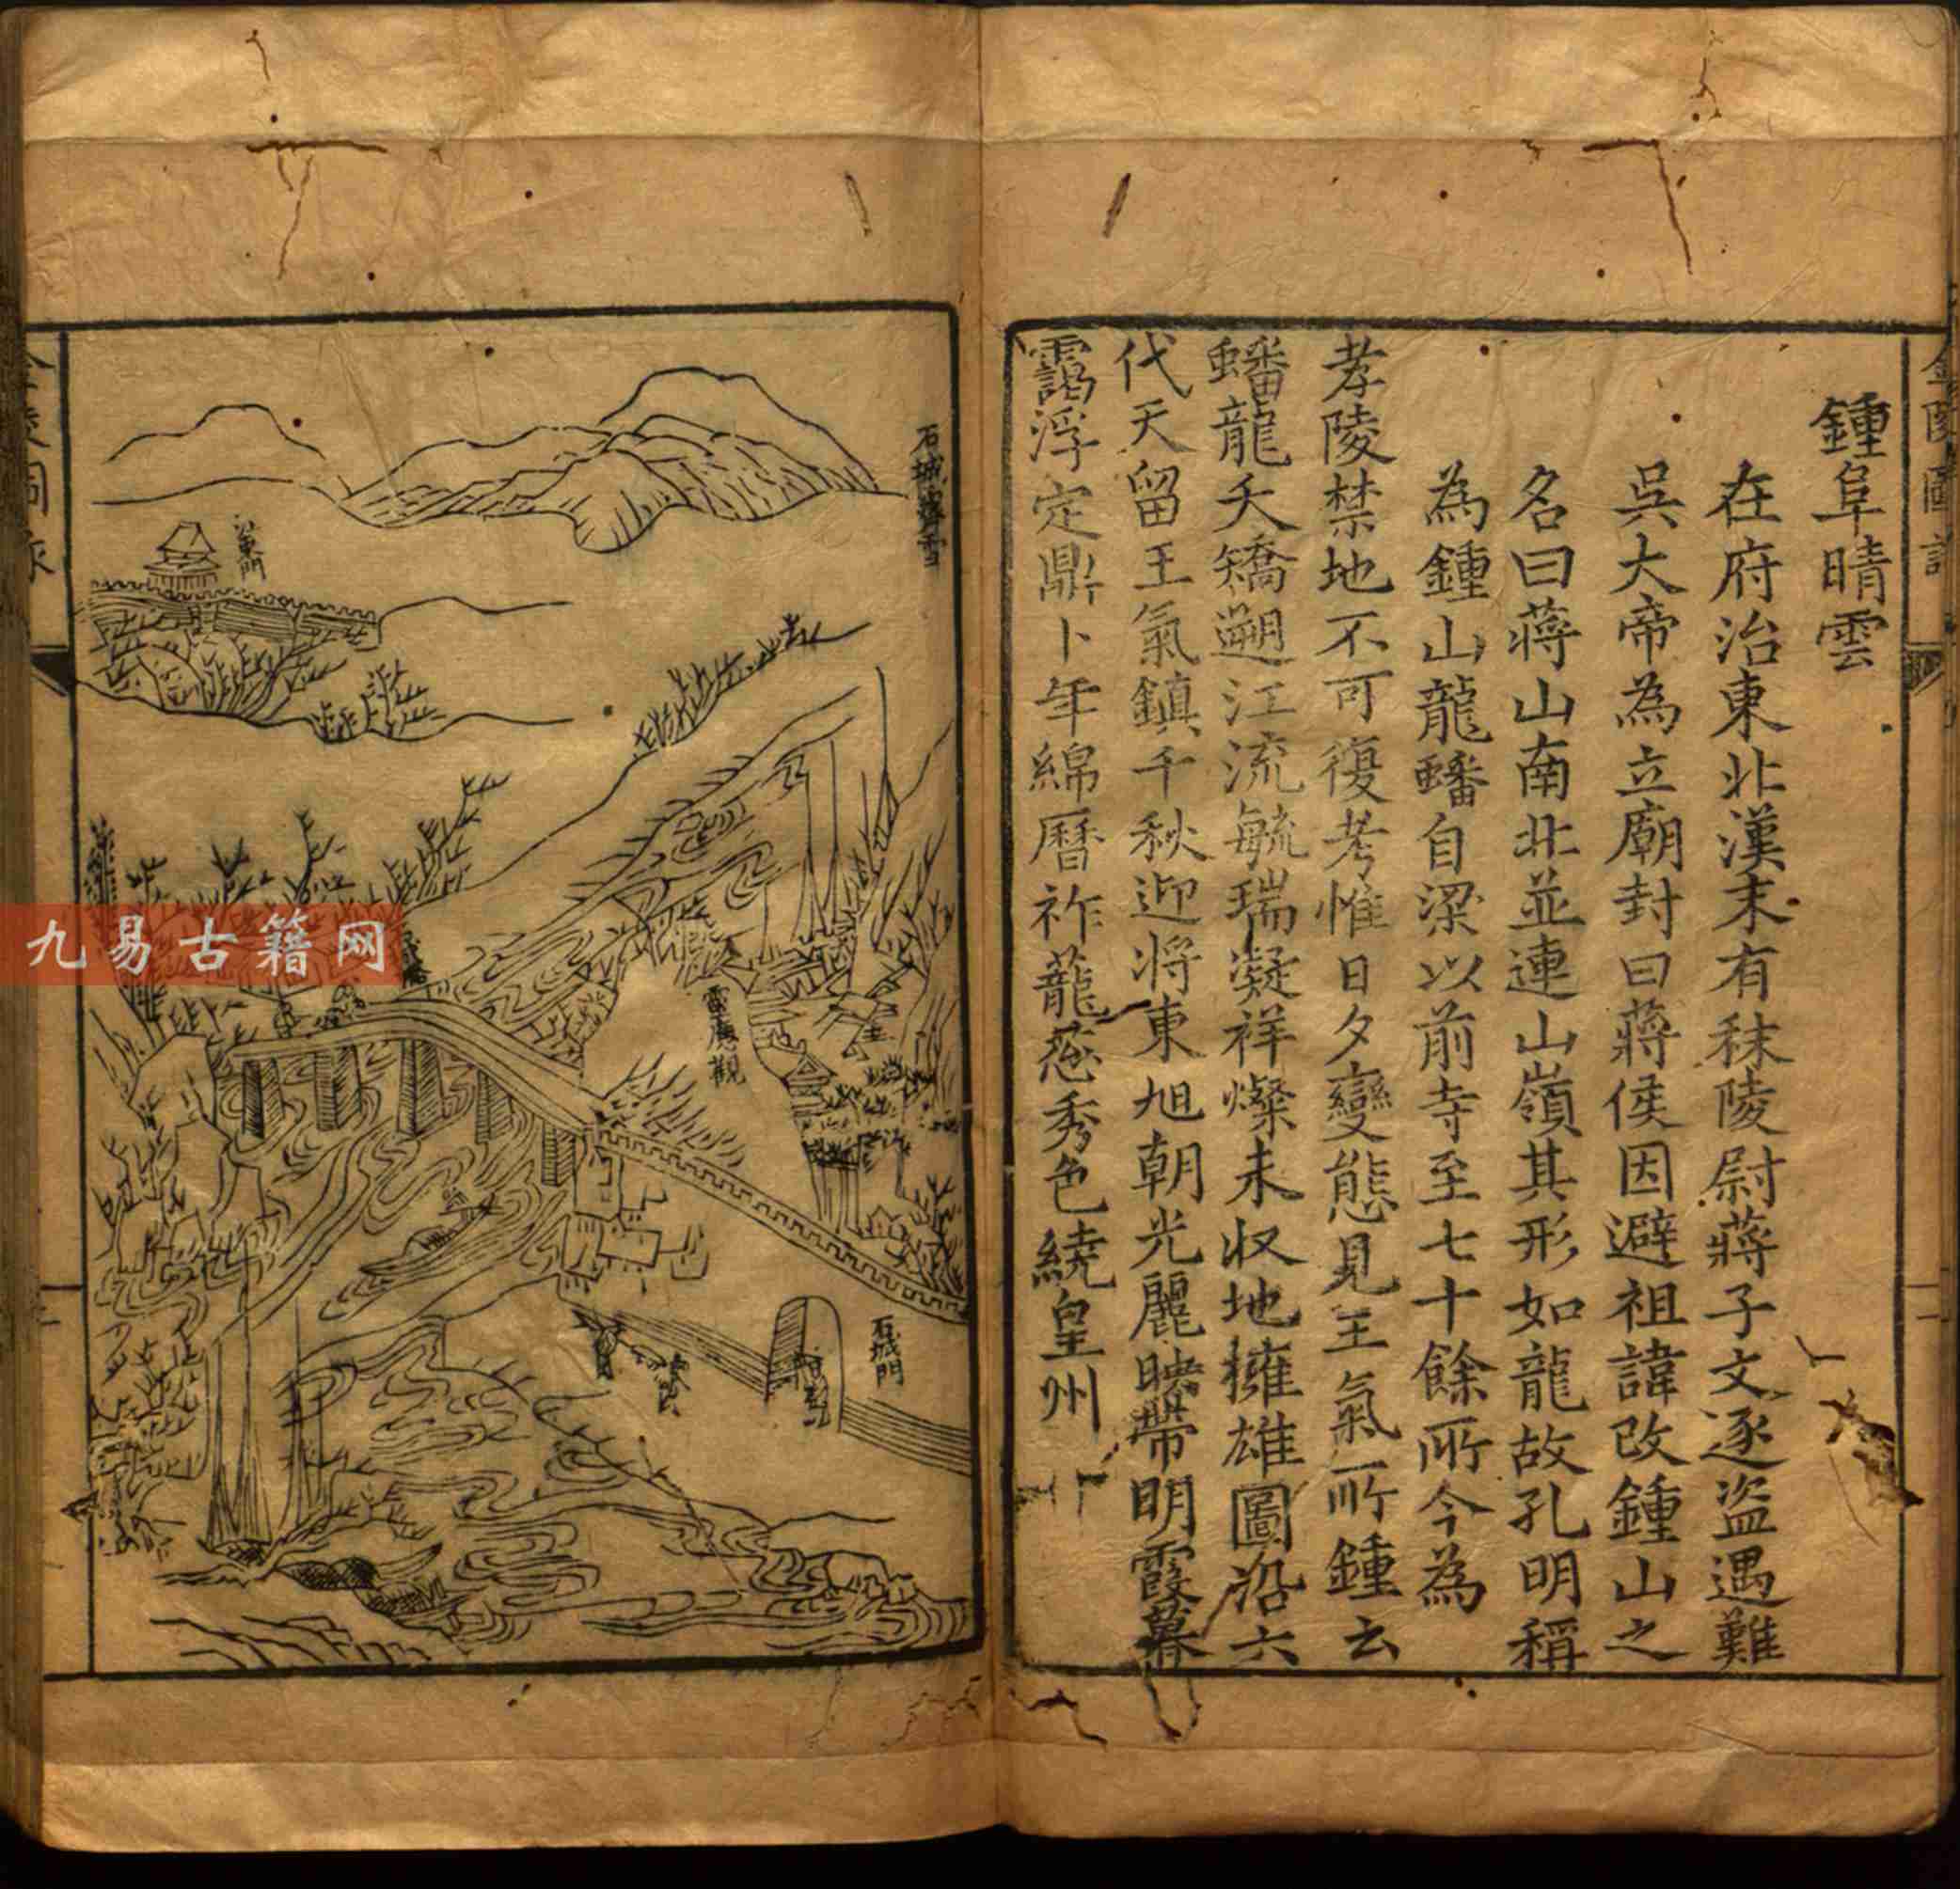 鍾阜晴雲
在府治東北漢末有秣陵尉蔣子文逐盜遇難
吳大帝為立廟封曰蔣侯因避祖諱改鍾山之
名曰蔣山南北並連山嶺其形如龍故孔明稱
為鍾山龍蟠自梁以前寺至七十餘所今為
孝陵禁地不可復考惟日夕變態見王氣所鍾云
蟠龍夭矯遡江流毓瑞凝祥燦未収地擁雄圖沿六
代天留王氣鎮千秋迎將東旭朝光麗映帶明霞暮
靄浮定鼎卜年綿曆祚蘢葱秀色繞皇州
石城霽雪
靈應觀
石城門
九易古籍网